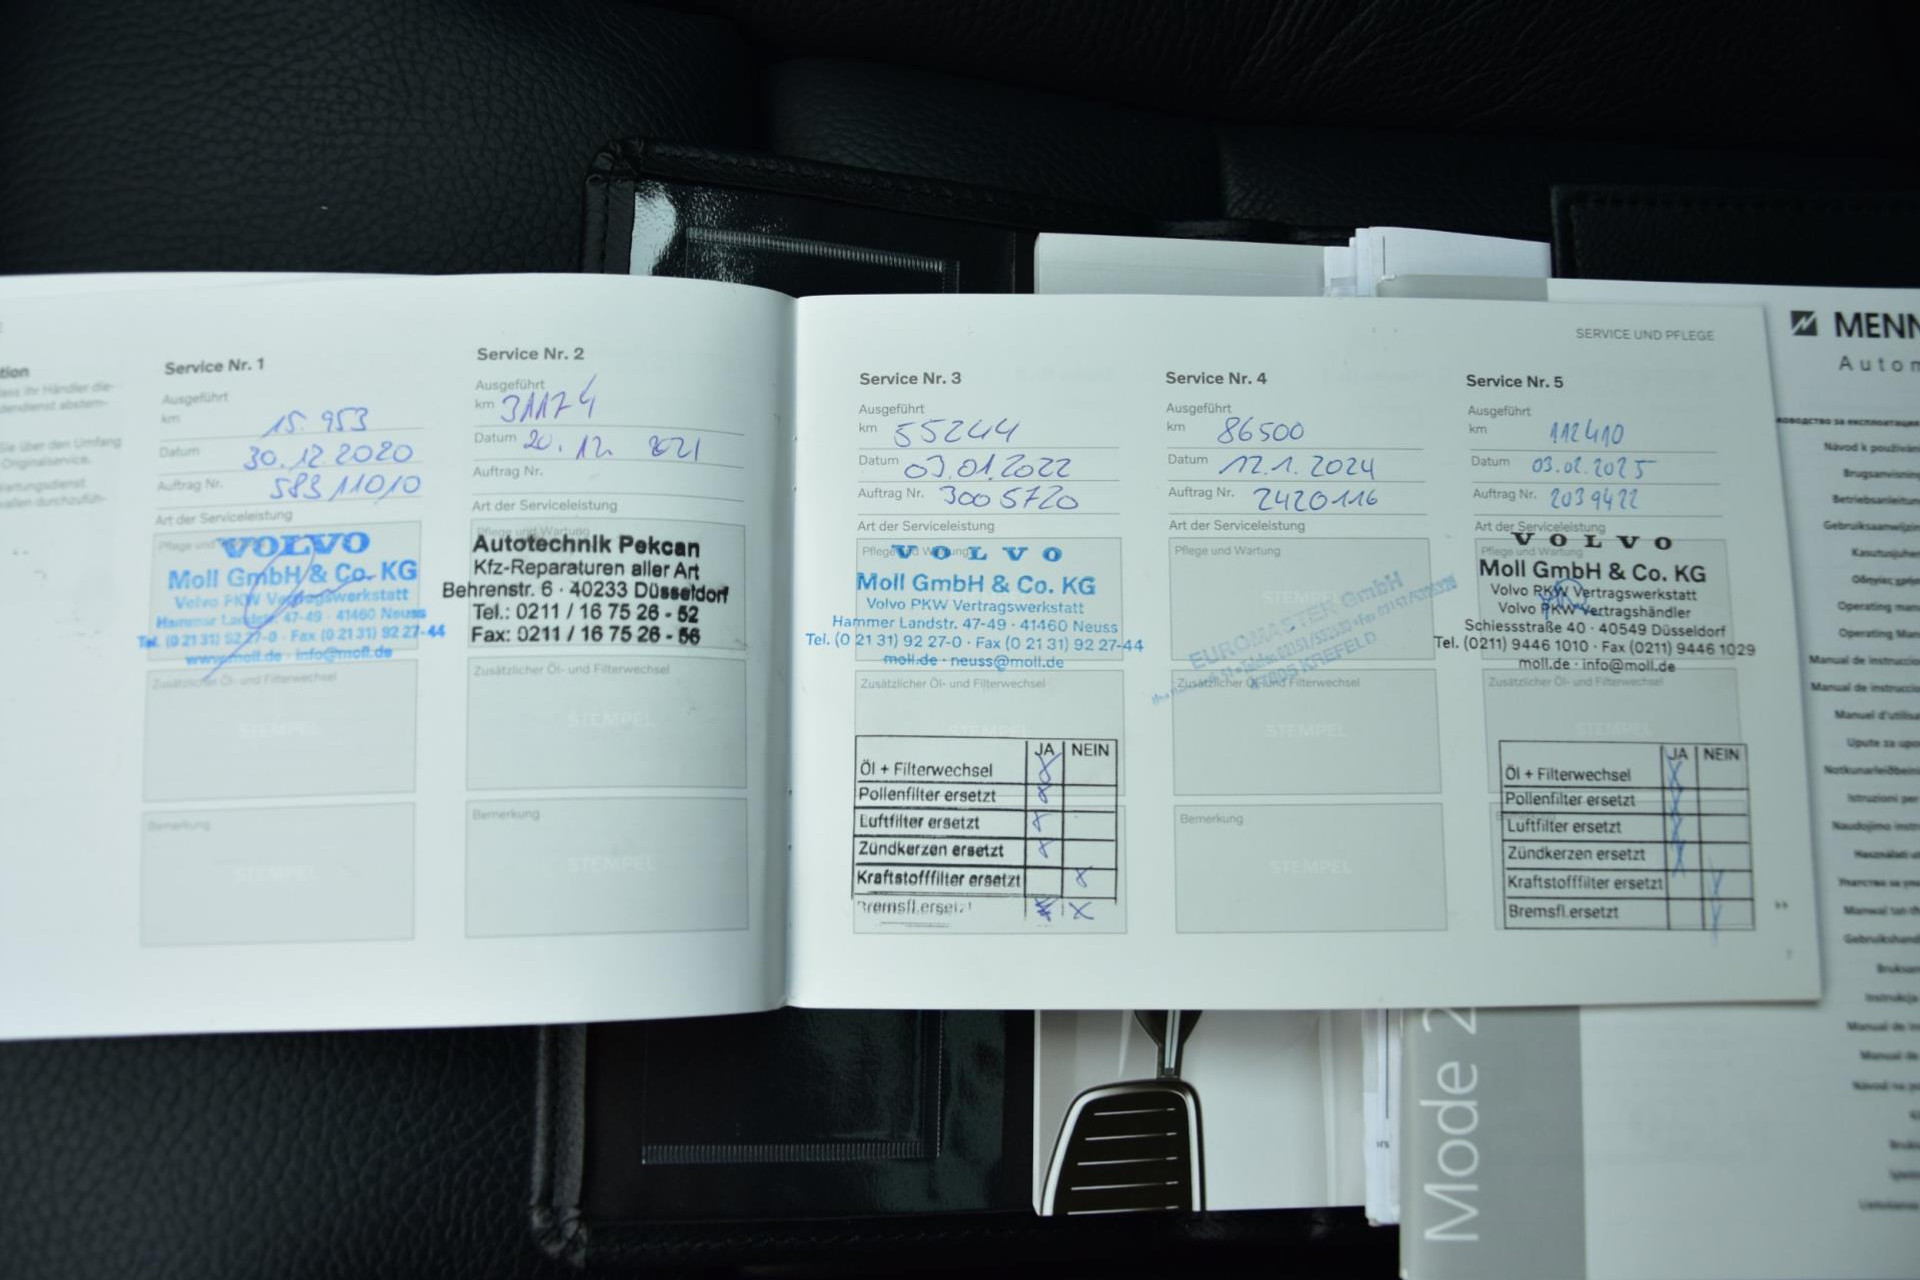 Service Nr. 1
Ausgeführt
km 15.953
Datum 30.12.2020
Auftrag Nr. 58311010
Art der Serviceleistung
Pflege und
VOLVO
Moll GmbH & Co. KG
Volvo PKW Vertragswerkstatt
Hammer Landstr. 47-49 · 41460 Neuss
Tel. (0 21 31) 92 27-0 · Fax (0 21 31) 92 27-44
www.moll.de · info@moll.de
Zusätzlicher Öl- und Filterwechsel
STEMPEL
Bemerkung
STEMPEL
Service Nr. 2
Ausgeführt
km 31174
Datum 20.12. 2021
Auftrag Nr.
Art der Serviceleistung
Pflege und Wartung
Autotechnik Pekcan
Kfz-Reparaturen aller Art
Behrenstr. 6 · 40233 Düsseldorf
Tel.: 0211 / 16 75 26 - 52
Fax: 0211 / 16 75 26 - 56
Zusätzlicher Öl- und Filterwechsel
STEMPEL
Bemerkung
STEMPEL
SERVICE UND PFLEGE
Service Nr. 3
Ausgeführt
km 55244
Datum 03.01.2022
Auftrag Nr. 3005720
Art der Serviceleistung
Pflege und Wartung
VOLVO
Moll GmbH & Co. KG
Volvo PKW Vertragswerkstatt
Hammer Landstr. 47-49 · 41460 Neuss
Tel. (0 21 31) 92 27-0 · Fax (0 21 31) 92 27-44
moll.de · neuss@moll.de
Zusätzlicher Öl- und Filterwechsel
STEMPEL
JA NEIN
Öl + Filterwechsel X
Pollenfilter ersetzt X
Luftfilter ersetzt X
Zündkerzen ersetzt X
Kraftstofffilter ersetzt X
Bremsfl.ersetzt X
Service Nr. 4
Ausgeführt
km 86500
Datum 12.1.2024
Auftrag Nr. 2420116
Art der Serviceleistung
Pflege und Wartung
EUROMASTER GmbH
KREFELD
Zusätzlicher Öl- und Filterwechsel
STEMPEL
Bemerkung
STEMPEL
Service Nr. 5
Ausgeführt
km 112410
Datum 03.02.2025
Auftrag Nr. 2039422
Art der Serviceleistung
Pflege und Wartung
VOLVO
Moll GmbH & Co. KG
Volvo PKW Vertragswerkstatt
Volvo PKW Vertragshändler
Schiessstraße 40 · 40549 Düsseldorf
Tel. (0211) 9446 1010 · Fax (0211) 9446 1029
moll.de · info@moll.de
Zusätzlicher Öl- und Filterwechsel
STEMPEL
JA NEIN
Öl + Filterwechsel X
Pollenfilter ersetzt X
Luftfilter ersetzt X
Zündkerzen ersetzt X
Kraftstofffilter ersetzt X
Bremsfl.ersetzt X
7
MENN
Autom
Návod k používán
Brugsanvisning
Betriebsanleitun
Gebruiksaanwijzin
Kasutusjuhen
Operating man
Operating Man
Manual de instruccio
Manual de instruccio
Manuel d'utilisa
Upute za upo
Istruzioni per
Naudojimo instr
Mode 2